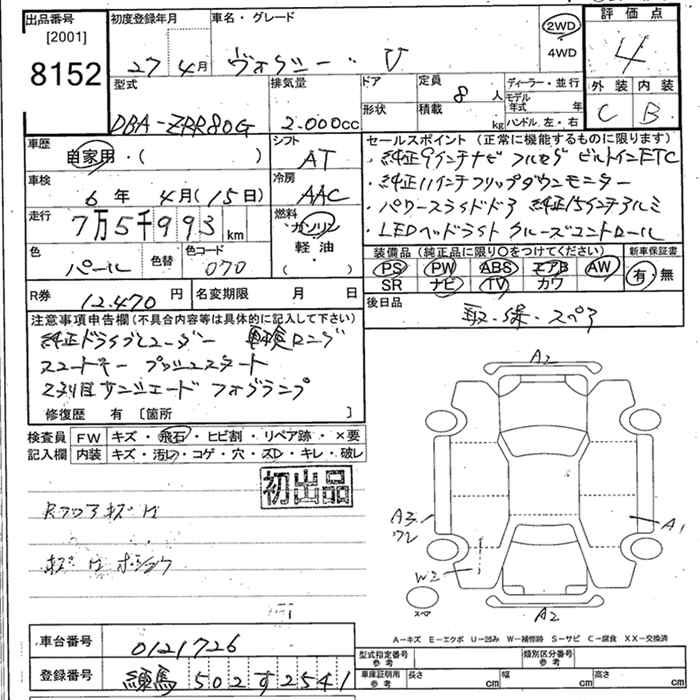 出品番号 初度登録年月 車名・グレード 評価点
[2001] 2WD
8152 27 4月 ヴォクシー V 4WD 4
型式 排気量 ドア 定員 ディーラー・並行 外装 内装
8人 モデル年式 年
形状 積載 kg ハンドル 左・右 C B
DBA-ZRR80G 2.000cc
車歴 自家用・( ) シフト AT セールスポイント(正常に機能するものに限ります)
・純正9インチナビ フルセグ ビルトインETC
車検 6年 4月(15日) 冷房 AAC ・純正11インチフリップダウンモニター
走行 7万5千993km 燃料 ガソリン ・パワースライドドア 純正15インチアルミ
軽油 ・LEDヘッドライト クルーズコントロール
( )
色 パール 色替 色コード 070 装備品(純正品に限り○をつけてください) 新車保証書
PS PW ABS エアB AW 有・無
SR ナビ TV カワ
R券 12.470円 名変期限 月 日 後日品 取・保・スペア
注意事項申告欄(不具合内容等は具体的に記入して下さい)
純正ドライブレコーダー
スマートキー プッシュスタート
2列目サンシェード フォグランプ
修復歴 有 [箇所 ]
検査員 FW キズ・飛石・ヒビ割・リペア跡・×要
記入欄 内装 キズ・汚レ・コゲ・穴・スレ・キレ・破レ
初出品
Rフロアキズ
A2
A3
ワレ
A1
W2
スペア
A2
A-キズ E-エクボ U-凹み W-補修跡 S-サビ C-腐食 XX-交換済
車台番号 0121726 型式指定番号 参考 類別区分番号 参考
登録番号 練馬 502 す 2541 車庫証明用 参考 長さ cm 幅 cm 高さ cm